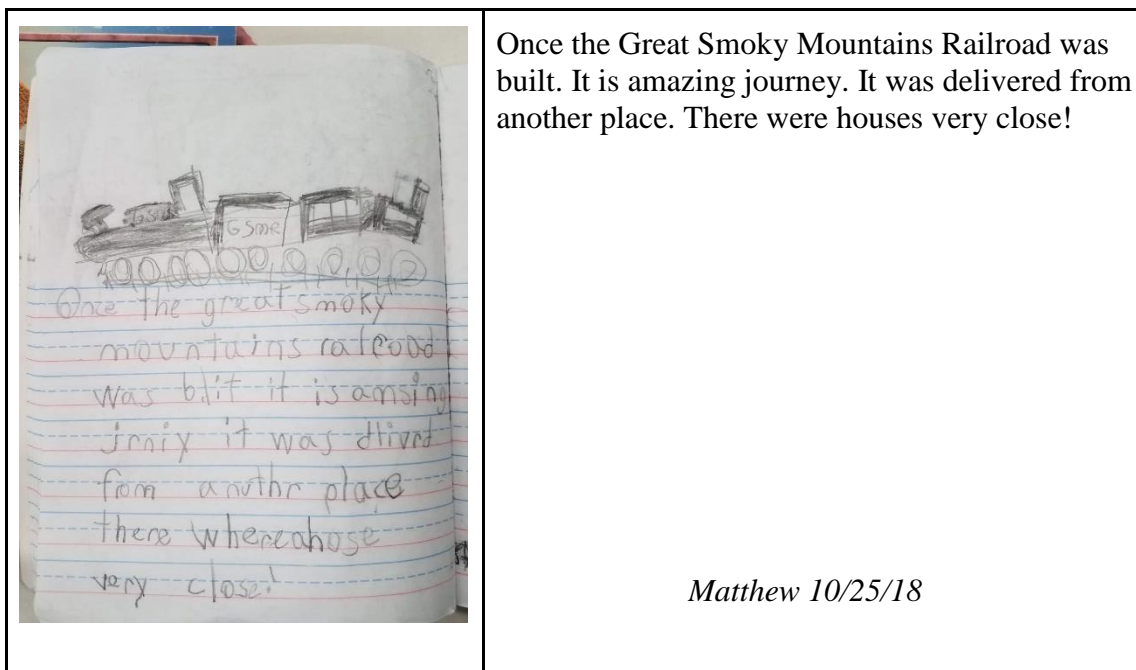 GSM
GSMR
Once the great smoky
mountains ralroad
was blit it is amsing
jrniy it was dlivrd
from anuthr place
there whereahose
very close!
Once the Great Smoky Mountains Railroad was
built. It is amazing journey. It was delivered from
another place. There were houses very close!
Matthew 10/25/18